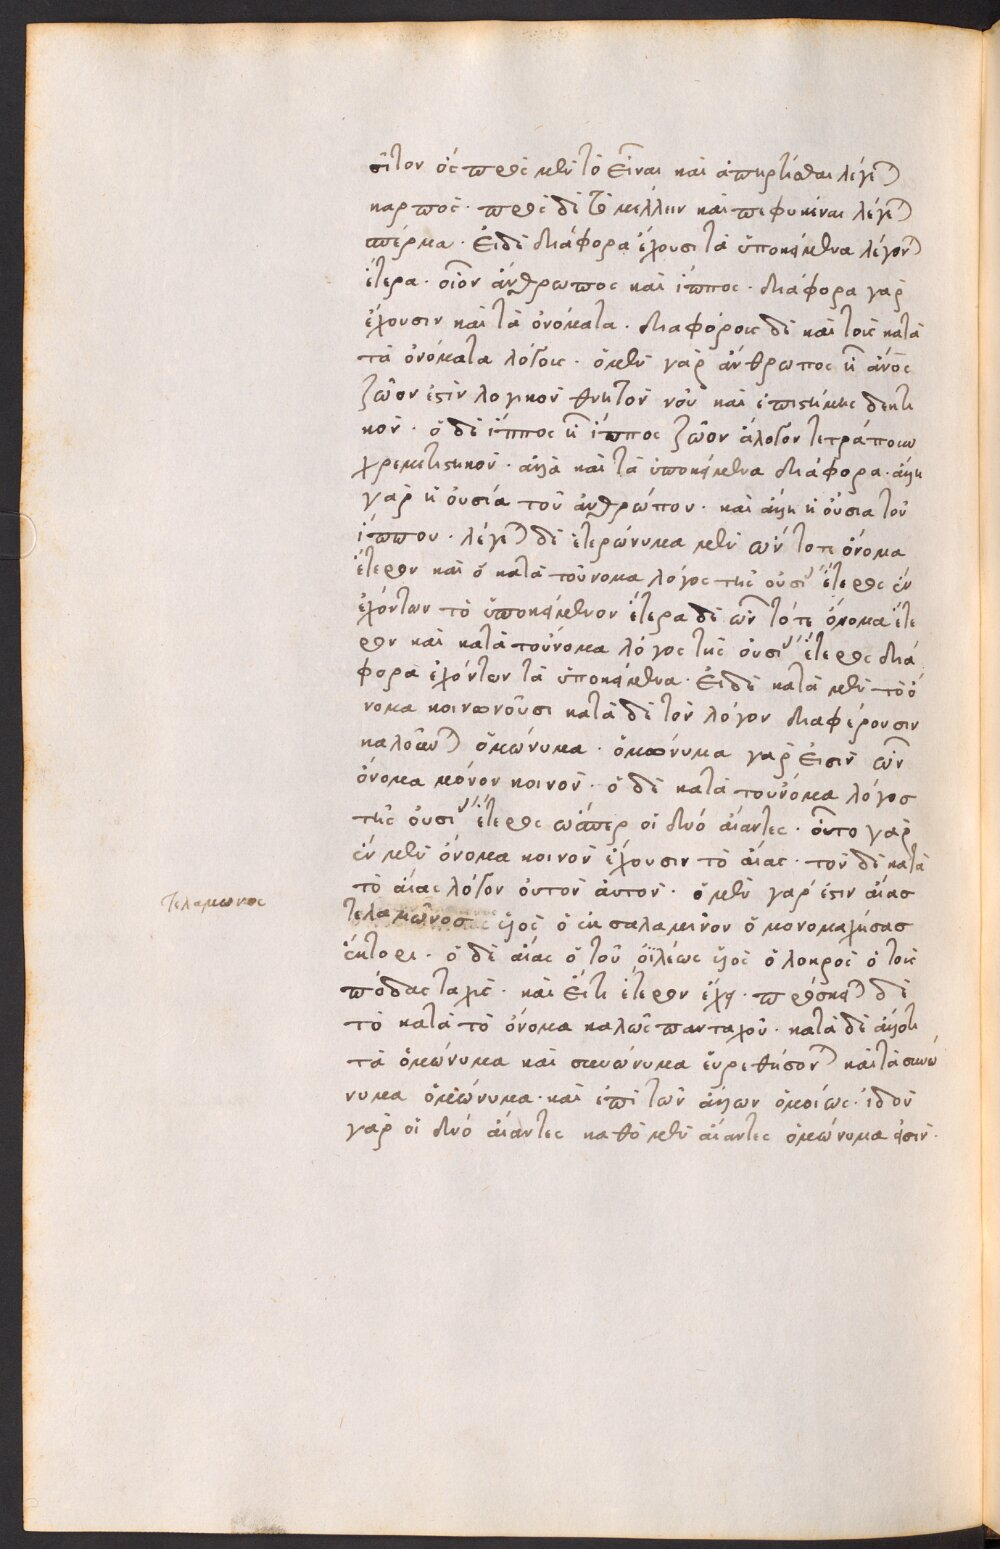 σῖτον ὃς πρὸς μὲν τὸ εἶναι καὶ ἀπηρτίσθαι λέγεται
καρπὸς· πρὸς δὲ τὸ μέλλειν καὶ πεφυκέναι λέγεται
σπέρμα. Εἰ δὲ διάφορα ἔχουσι τὰ ὑποκείμενα λέγονται
ἕτερα· οἷον ἄνθρωπος καὶ ἵππος· διάφορα γὰρ
ἔχουσιν καὶ τὰ ὀνόματα· διαφόροις δὲ καὶ τοῖς κατὰ
τὰ ὀνόματα λόγοις· ὁ μὲν γὰρ ἄνθρωπος ᾗ ἄνος
ζῶον ἐστὶν λογικὸν θνητὸν νοῦ καὶ ἐπιστήμης δεκτι
κὸν· ὁ δὲ ἵππος ᾗ ἵππος ζῶον ἄλογον τετράπουν
χρεμετιστικὸν· ἀλλὰ καὶ τὰ ὑποκείμενα διάφορα· ἄλλη
γὰρ ἡ οὐσία τοῦ ἀνθρώπου· καὶ ἄλλη ἡ οὐσία τοῦ
ἵππου· λέγεται δὲ ἑτερώνυμα μὲν ὧν τό τε ὄνομα
ἕτερον καὶ ὁ κατὰ τοὔνομα λόγος τῆς οὐσίας ἕτερος ἓν
ἐχόντων τὸ ὑποκείμενον ἕτερα δὲ ὧν τό τε ὄνομα ἕτε
ρον καὶ κατὰ τοὔνομα λόγος τῆς οὐσίας ἕτερος διά
φορα ἐχόντων τὰ ὑποκείμενα. Εἰ δὲ κατὰ μὲν τὸ ὄ
νομα κοινωνοῦσι κατὰ δὲ τὸν λόγον διαφέρουσιν
καλοῦνται ὁμώνυμα· ὁμώνυμα γὰρ εἰσὶν ὧν
ὄνομα μόνον κοινὸν· ὁ δὲ κατὰ τοὔνομα λόγος
τῆς οὐσίας ἕτερος ὥσπερ οἱ δυὸ αἴαντες· οὗτοι γὰρ
ἓν μὲν ὄνομα κοινὸν ἔχουσιν τὸ αἴας· τὸν δὲ κατὰ
τὸ αἴας λόγον οὐ τὸν αὐτὸν· ὁ μὲν γάρ ἐστιν αἴας
τελαμῶνος υἱὸς ὁ ἐκ σαλαμῖνον ὁ μονομαχήσας
ἕκτορι· ὁ δὲ αἴας ὁ τοῦ ὀϊλέως υἱὸς ὁ λοκρὸς ὁ τοὺς
πόδας ταχὺς· καὶ εἴ τι ἕτερον ἔχει· πρόσκειται δὲ
τὸ κατὰ τὸ ὄνομα καλῶς πανταχοῦ· κατὰ δὲ ἄλλο τι
τὰ ὁμώνυμα καὶ συνώνυμα εὑρεθήσονται καὶ τὰ συνώ
νυμα ὁμώνυμα· καὶ ἐπὶ τῶν ἄλλων ὁμοίως· ἰδοὺ
γὰρ οἱ δυὸ αἴαντες καθὸ μὲν αἴαντες ὁμώνυμα εἰσὶν·
τελαμωνος